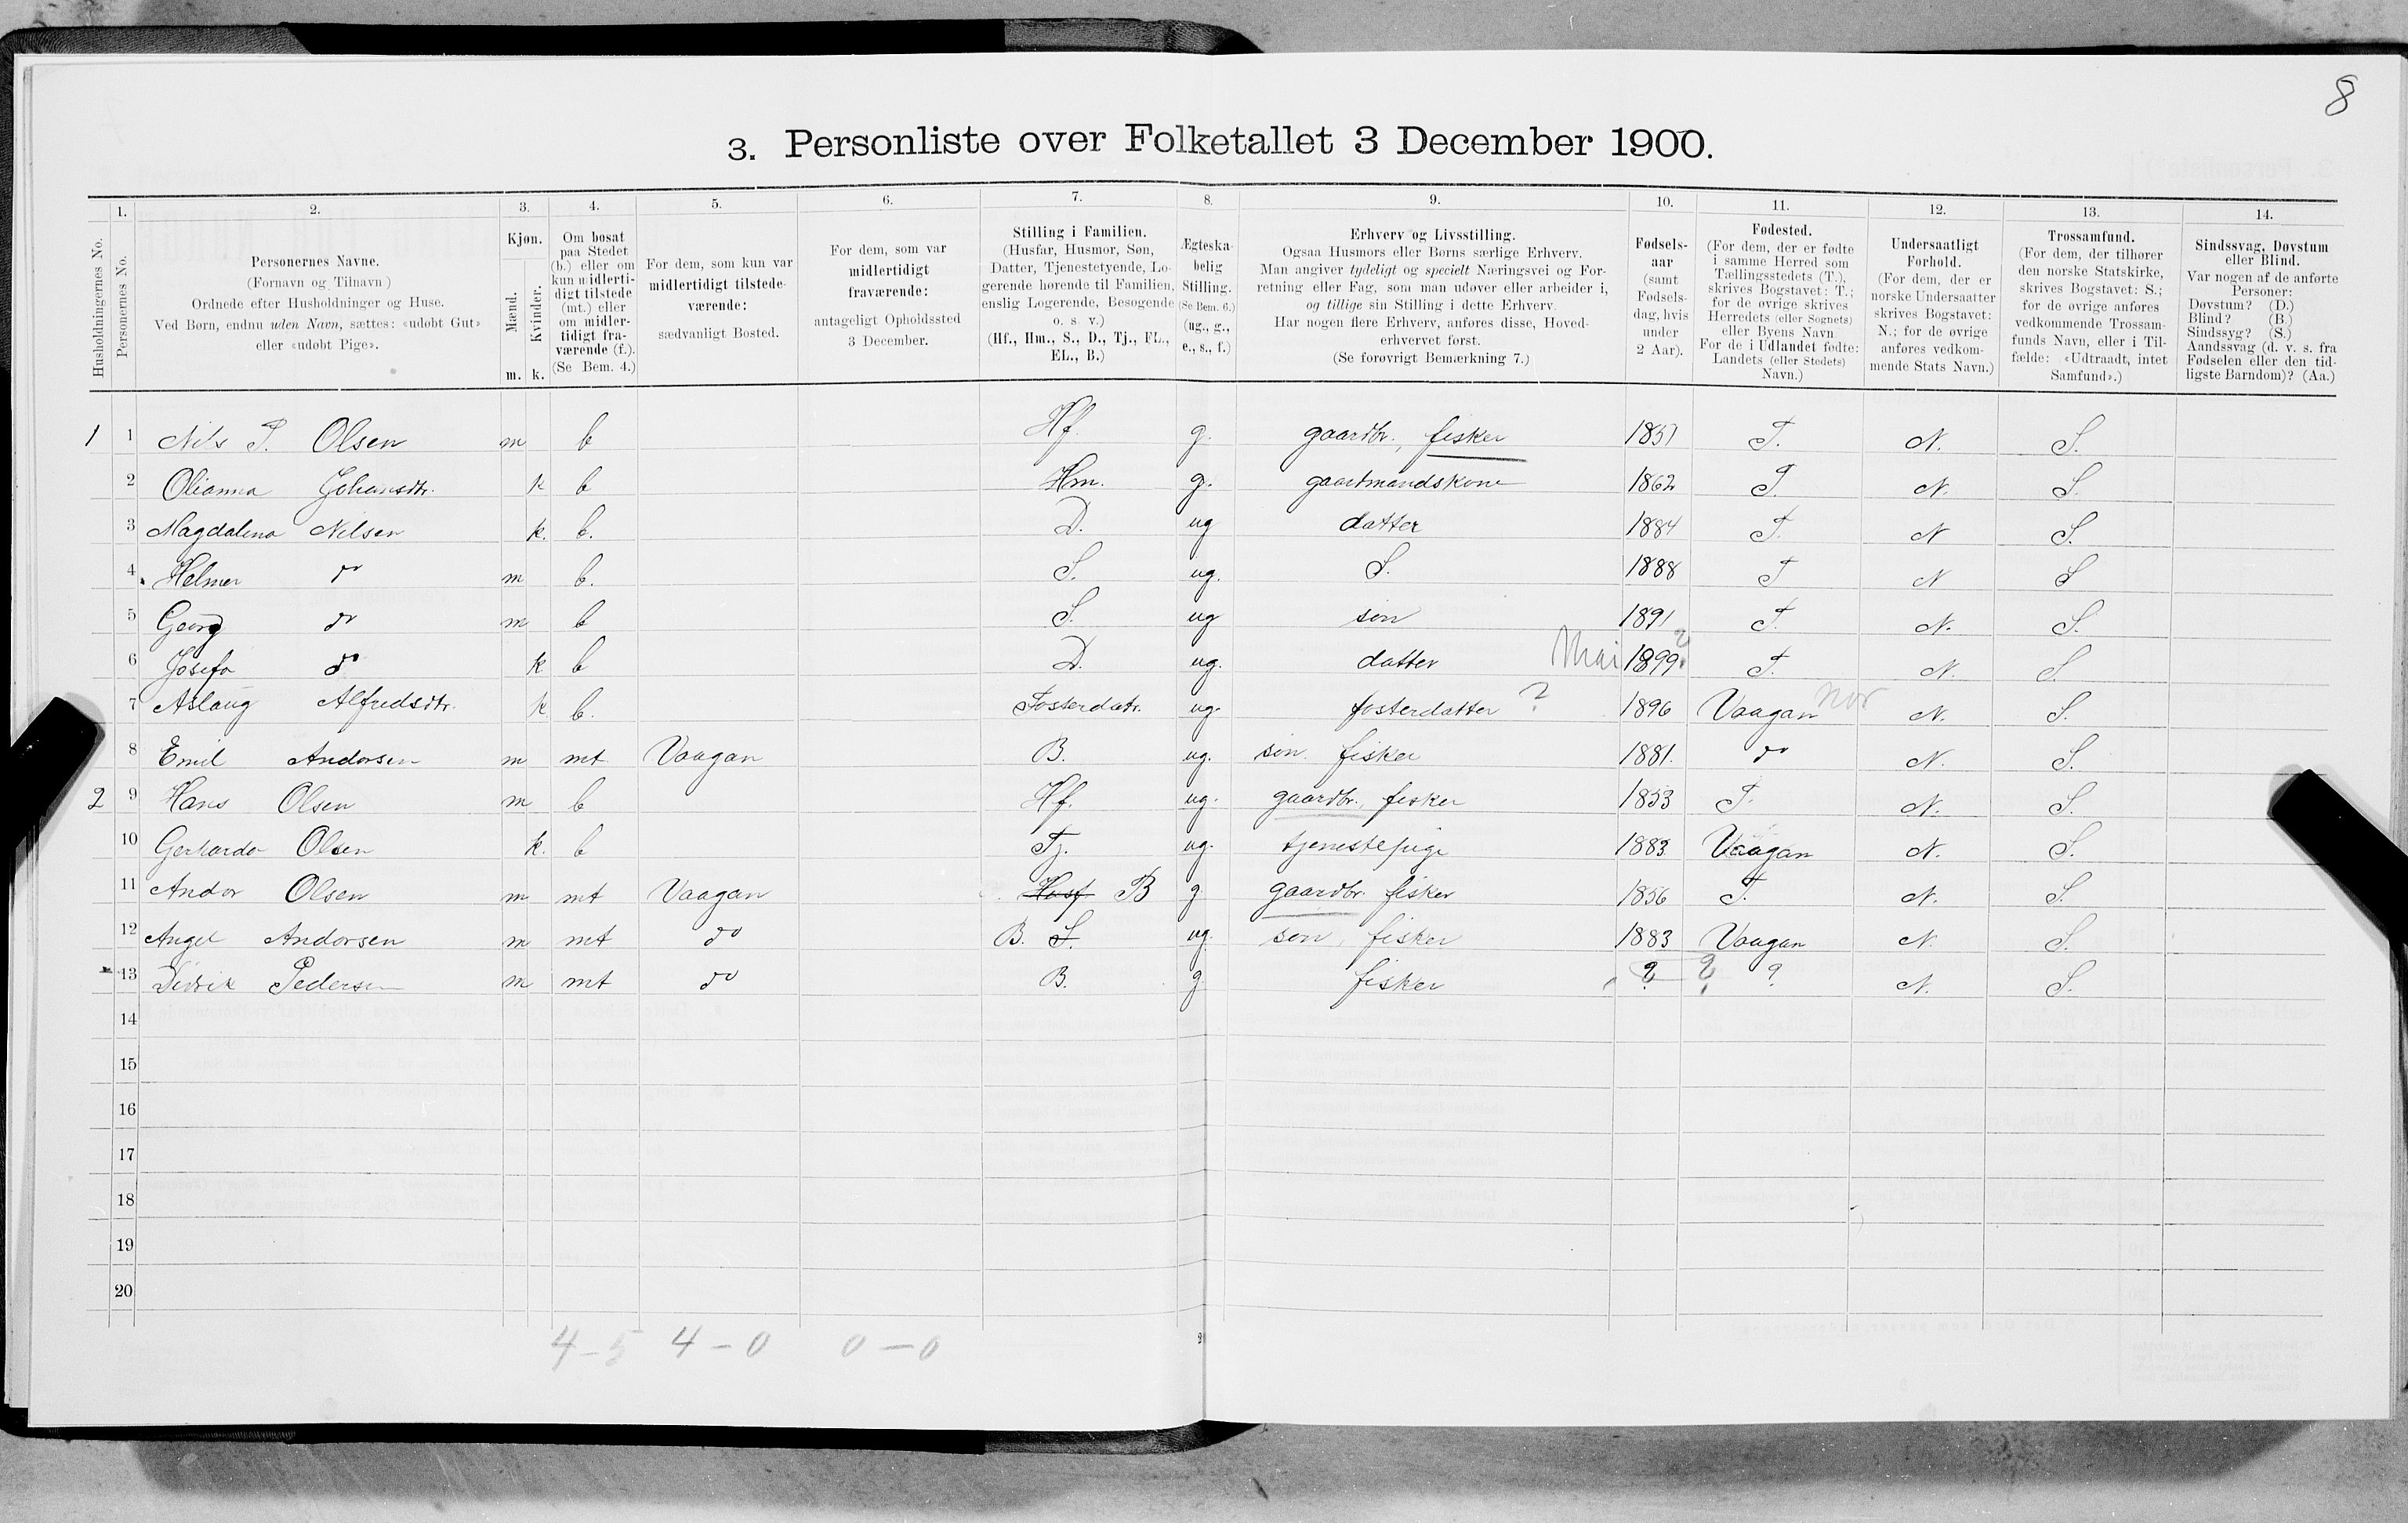 8
3. Personliste over Folketallet 3 December 1900.
1. 2. 3. 4. 5. 6. 7. 8. 9. 10. 11. 12. 13. 14.
Husholdningernes No.
Personernes No.
Personernes Navne.
(Fornavn og Tilnavn)
Ordnede efter Husholdninger og Huse.
Ved Børn, endnu uden Navn, sættes: «udøbt Gut»
eller «udøbt Pige».
Kjøn.
Mænd.
Kvinder.
m. k.
Om bosat
paa Stedet
(b.) eller om
kun midlerti-
digt tilstede
(mt.) eller
om midler-
tidigt fra-
værende (f.).
(Se Bem. 4.)
For dem, som kun var
midlertidigt tilstede-
værende:
sædvanligt Bosted.
For dem, som var
midlertidigt
fraværende:
antageligt Opholdssted
3 December.
Stilling i Familien.
(Husfar, Husmor, Søn,
Datter, Tjenestetyende, Lo-
gerende hørende til Familien,
enslig Logerende, Besøgende
o. s. v.)
(Hf., Hm., S., D., Tj., FL.,
EL., B.)
Ægteska-
belig
Stilling.
(Se Bem. 6.)
(ug., g.,
e., s., f.)
Erhverv og Livsstilling.
Ogsaa Husmors eller Børns særlige Erhverv.
Man angiver tydeligt og specielt Næringsvei og For-
retning eller Fag, som man udøver eller arbeider i,
og tillige sin Stilling i dette Erhverv.
Har nogen flere Erhverv, anføres disse, Hoved-
erhvervet først.
(Se forøvrigt Bemærkning 7.)
Fødsels-
aar
(samt
Fødsels-
dag, hvis
under
2 Aar).
Fødested.
(For dem, der er fødte
i samme Herred som
Tællingsstedets (T.),
skrives Bogstavet: T.;
for de øvrige skrives
Herredets (eller Sognets)
eller Byens Navn
For de i Udlandet fødte:
Landets (eller Stedets)
Navn.)
Undersaatligt
Forhold.
(For dem, der er
norske Undersaatter
skrives Bogstavet:
N.; for de øvrige
anføres vedkom-
mende Stats Navn.)
Trossamfund.
(For dem, der tilhører
den norske Statskirke,
skrives Bogstavet: S.;
for de øvrige anføres
vedkommende Trossam-
funds Navn, eller i Til-
fælde: «Udtraadt, intet
Samfund».)
Sindssvag, Døvstum
eller Blind.
Var nogen af de anførte
Personer:
Døvstum? (D.)
Blind? (B)
Sindssyg? (S.)
Aandssvag (d. v. s. fra
Fødselen eller den tid-
ligste Barndom)? (Aa.)
1 1 Nils P. Olsen m b Hf. g. gaardbr., fisker 1851 T. N. S.
2 Olianna Johansdtr. k b Hm. g. gaardmandskone 1862 T. N. S.
3 Magdalena Nilsen k. b. D. ug datter 1884 T. N S.
4 Helmer do m b. S. ug. S. 1888 T N S
5 Georg do m b S. ug søn 1891 T. N. S.
6 Josefa do k b D. ug. datter Mai 1899 ? T. N. S.
7 Aslaug Alfredsdtr. k b. Fosterdatr. ug. fosterdatter ? 1896 Vaagan nor N. S.
8 Emil Andorsen m mt Vaagan B. ug. søn fisker 1881. do N. S.
2 9 Hans Olsen m b Hf. ug. gaardbr., fisker 1853 T. N. S.
10 Gerharda Olsen k. b Tj. ug. tjenestepige 1883 Vaagan N. S.
11 Andor Olsen m mt Vaagan Husf B g gaardbr. fisker 1856 T. N. S.
12 Angel Andorsen m mt do B. S. ug. søn, fisker 1883 Vaagan N. S.
13 Didrik Pedersen m mt do B. g fisker ? ? ? N. S.
14
15
16
17
18
19
20
4-5 4-0 0-0